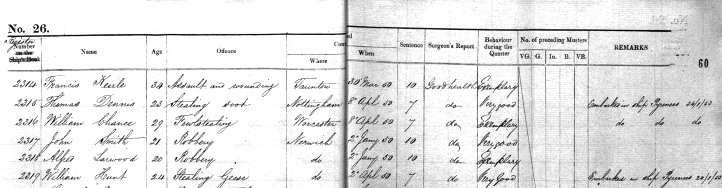 No. 26.
Register Number on the Ship's Book Name Age Offence Convicted Where When Sentence Surgeon's Report Behaviour during the Quarter No. of preceding Musters VG. G. In. B. VB. REMARKS
60
2314 Francis Keirle 34 Assault and wounding Taunton 30 Mar 50 10 Good health Exemplary
2315 Thomas Dennis 23 Stealing Nottingham 5 Apl 50 7 do Very good Embarked in ship Pyrenees
2316 William Chance 29 Fowlstealing Worcester 8 Apl 50 7 do Exemplary do do do
2317 John Smith 21 Robbery Norwich 2 Jany 50 10 do Very good
2318 Alfred Larwood 20 Robbery do 2 Jany 50 10 do Exemplary
2319 William Hunt 24 Stealing Geese do 2 Apl 50 7 do Very Good Embarked in ship Pyrenees